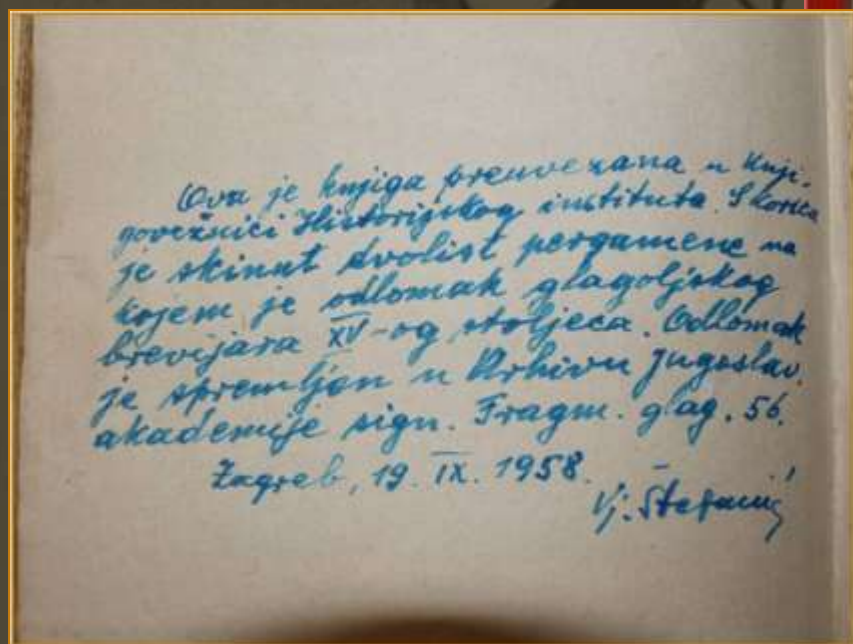 Ova je knjiga preuvezana u Knji-
govežnici Historijskog instituta. S korica
je skinut dvolist pergamene na
kojem je odlomak glagoljskog
brevijara XV-og stoljeća. Odlomak
je spremljen u Arhivu Jugoslav.
akademije sign. Fragm. glag. 56.
Zagreb, 19. IX. 1958.
Vj. Štefanić